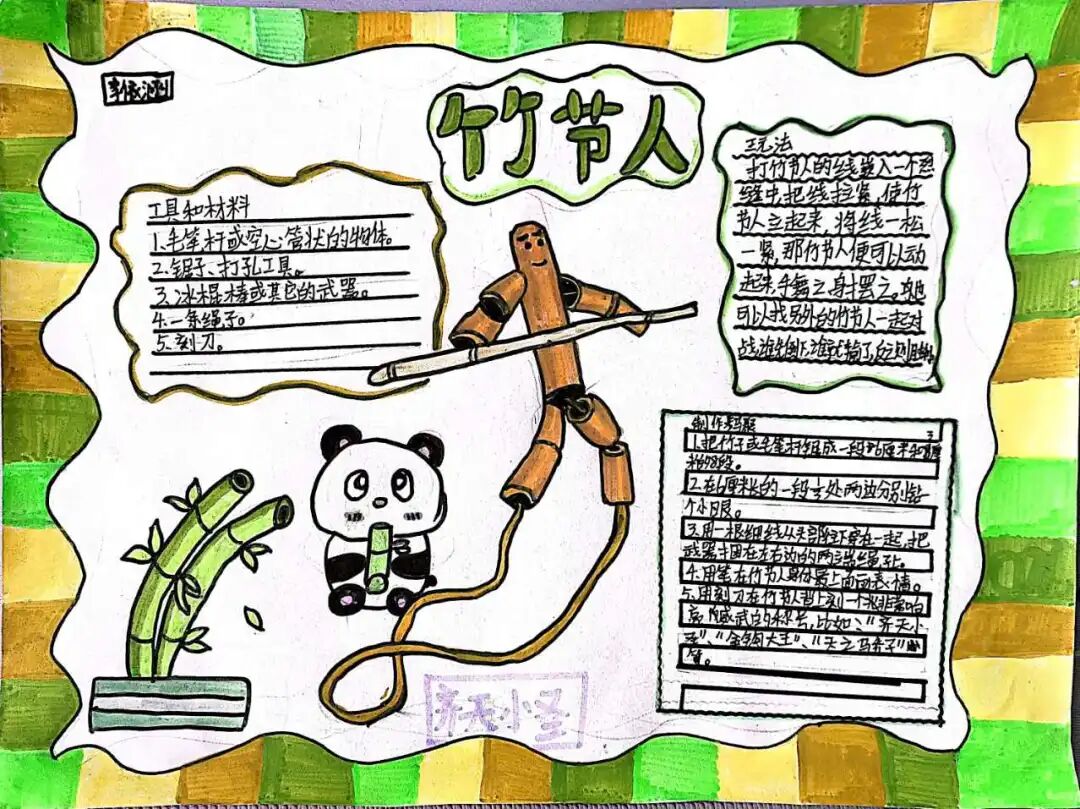 竹节人
工具和材料
1.毛笔杆或空心管状的物体。
2.锯子、打孔工具。
3.冰棍棒或其它的武器。
4.一条绳子。
5.刻刀。
玩法
打竹节人的线嵌入一个
缝中,把线拉紧,使竹
节人立起来,将线一松
一紧,那竹节人便可以动
起来,手舞之身摆之。
可以找另外的竹节人一起对
战,谁先倒下谁就输了,反之则
制作
1.把竹子或毛笔杆
的8段。
2.在6厘米长的一段 处两边分别钻
个小眼。
3.用一根细线从 穿在一起,把
武器 固在左右边的两 绳 上。
4.用笔在竹节人身体最上面画表情。
5.用刻刀在竹节人 上刻一个 非常响
亮,威武的称号,比如、"齐天小
圣"、"金钩大王"、"天之 子"
等。
齐天小圣